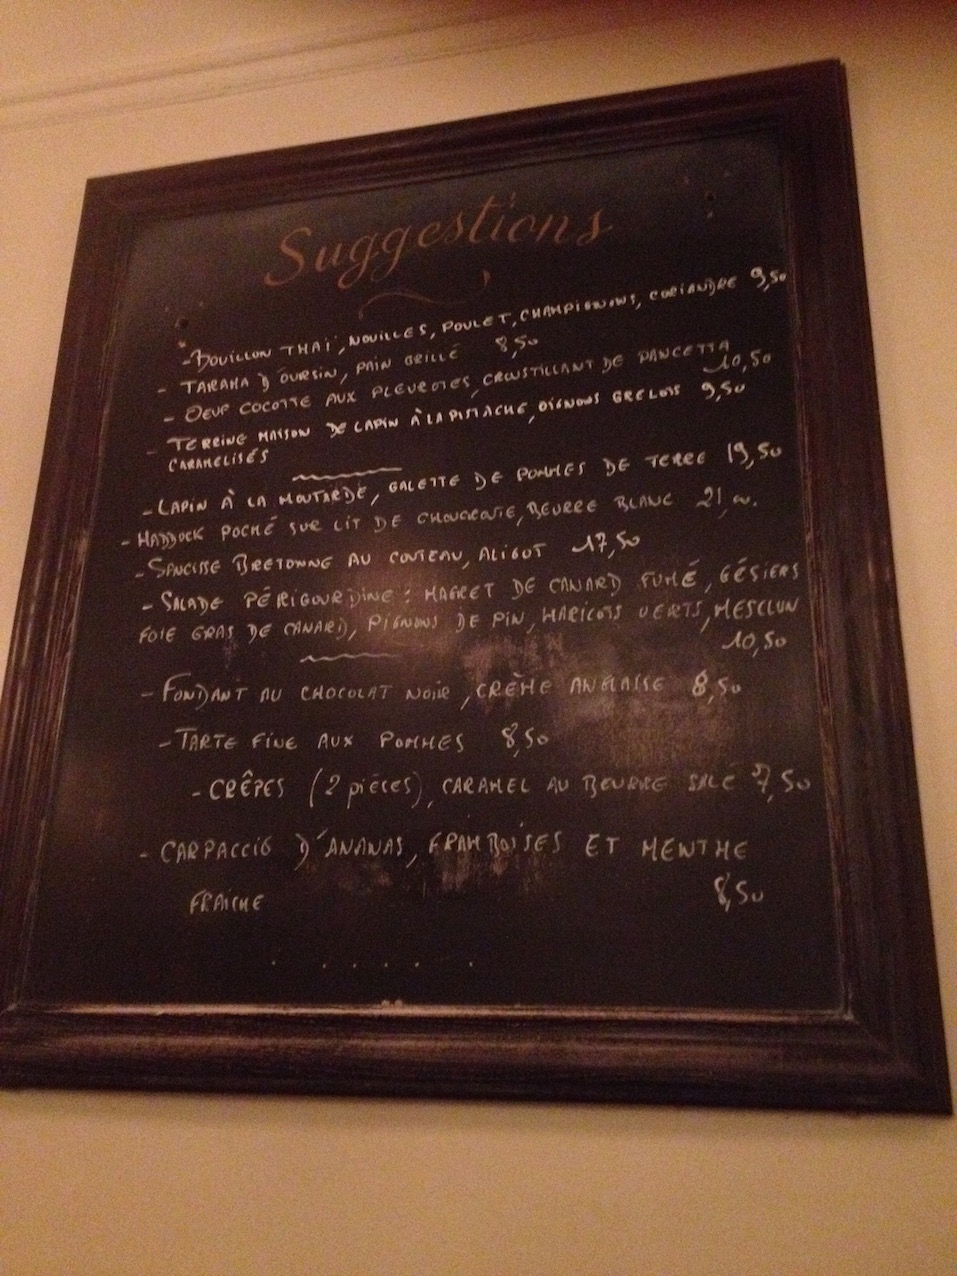 Suggestions
- BOUILLON THAÏ, NOUILLES, POULET, CHAMPIGNONS, CORIANDRE 9,50
- TARAMA D'OURSIN, PAIN GRILLÉ 8,50
- OEUF COCOTTE AUX PLEUROTES, CROUSTILLANT DE PANCETTA
10,50
- TERRINE MAISON DE LAPIN À LA PISTACHE, OIGNONS GRELOTS 9,50
CARAMELISÉS
- LAPIN À LA MOUTARDE, GALETTE DE POMMES DE TERRE 19,50
- HADDOCK POCHÉ SUR LIT DE CHOUCROUTE, BEURRE BLANC 21,00.
- SAUCISSE BRETONNE AU COUTEAU, ALIGOT 17,50
- SALADE PÉRIGOURDINE : MAGRET DE CANARD FUMÉ, GÉSIERS
FOIE GRAS DE CANARD, PIGNONS DE PIN, HARICOTS VERTS, MESCLUN
10,50
- FONDANT AU CHOCOLAT NOIR, CRÈME ANGLAISE 8,50
- TARTE FINE AUX POMMES 8,50
- CRÊPES (2 pièces), CARAMEL AU BEURRE SALÉ 7,50
- CARPACCIO D'ANANAS, FRAMBOISES ET MENTHE
FRAICHE 8,50